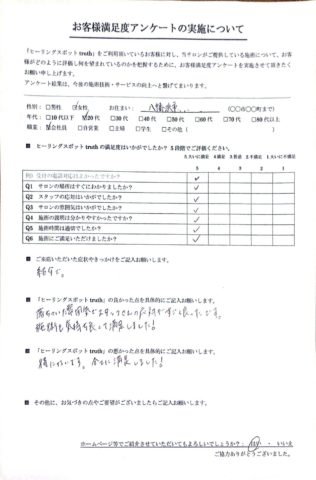 お客様満足度アンケートの実施について
『ヒーリングスポット truth』をご利用頂いているお客様に対し、当サロンがご提供している施術について、お客
様がどのように評価し何を望まれているのかを把握するために、お客様満足度アンケートを実施させて頂きたく
お願い申し上げます。
アンケート結果は、今後の施術技術・サービスの向上へと繋げてまいります。
性別：□男性 ☑女性 お住まい： 八幡浜市 （○○市○○町まで）
年代：□10代以下 ☑20代 □30代 □40代 □50代 □60代 □70代 □80代以上
職業：☑会社員 □自営業 □主婦 □学生 □その他（ ）
■ ヒーリングスポット truth の満足度はいかがでしたか？ 5段階でご評価ください。
5.大いに満足 4.満足 3.普通 2.不満足 1.大いに不満足
5 4 3 2 1
例） 受付の電話対応はよかったですか？ ✓
Q1 サロンの場所はすぐにわかりましたか？ ✓
Q2 スタッフの応対はいかがでしたか？ ✓
Q3 サロンの雰囲気はいかがでしたか？ ✓
Q4 施術の説明は分かりやすかったですか？ ✓
Q5 施術時間は適切でしたか？ ✓
Q6 施術にご満足いただけましたか？ ✓
■ ご来店いただいた症状やきっかけをご記入お願いします。
紹介で。
■ 『ヒーリングスポット truth』の良かった点を具体的にご記入お願いします。
落ちついた雰囲気がスタッフさんの応対がすごく良かったです。
施術も気持ち良くて満足しました！
■ 『ヒーリングスポット truth』の悪かった点を具体的にご記入お願いします。
特にないです。 満足しました！
■ その他に、お気づきの点やご要望がございましたらご記入お願いします。
ホームページ等でご紹介させていただいてもよろしいでしょうか？： はい ・ いいえ
ご協力ありがとうございました。